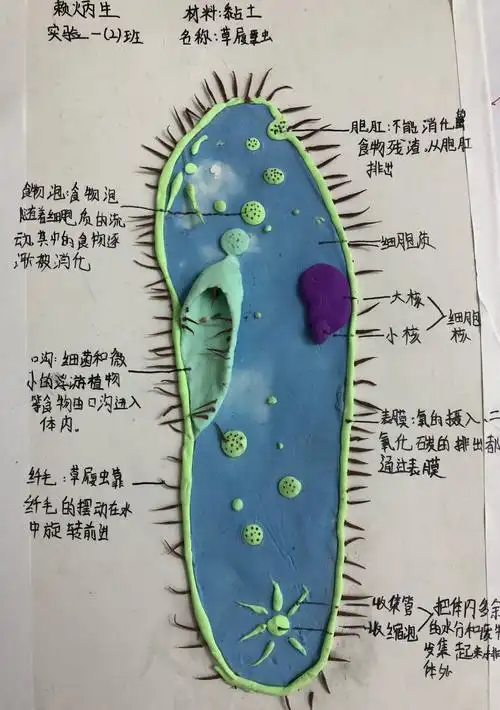 赖炳生
实验一(2)班
材料:黏土
名称:草履虫
胞肛:不能消化
食物残渣,从胞肛
排出
食物泡:食物泡
随着细胞质的流
动,其中的食物逐
渐被消化
细胞质
大核
小核
细胞
核
口沟:细菌和微
小的浮游植物
等食物由口沟进入
体内。
表膜:氧的摄入、二
氧化碳的排出都
通过表膜
纤毛:草履虫靠
纤毛的摆动在水
中旋转前进
收集管
收缩泡
把体内多余
的水分和废
收集起来排
体外